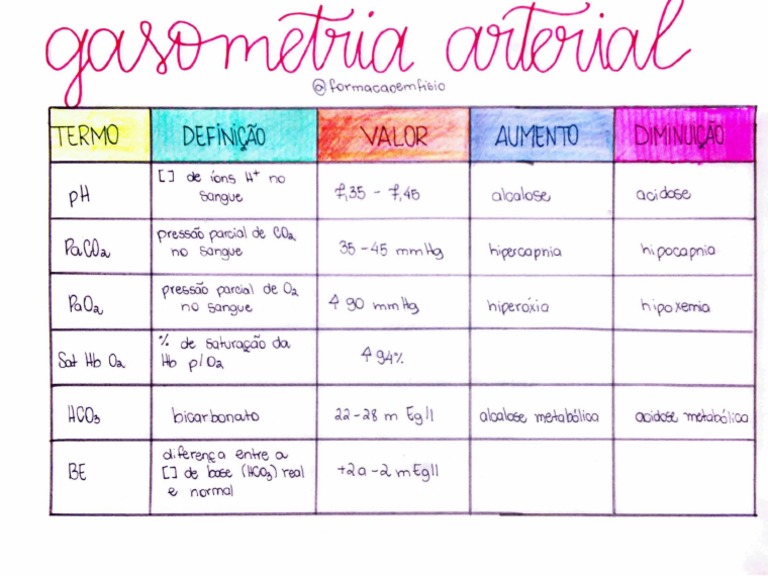 gasometria arterial
@formacaoemfisio
TERMO DEFINIÇÃO VALOR AUMENTO DIMINUIÇÃO
pH [] de íons H⁺ no sangue 7,35 - 7,45 alcalose acidose
PaCO₂ pressão parcial de CO₂ no sangue 35-45 mmHg hipercapnia hipocapnia
PaO₂ pressão parcial de O₂ no sangue ↑ 90 mmHg hiperóxia hipoxemia
Sat Hb O₂ % de saturação da Hb p/ O₂ ↑ 94%
HCO₃ bicarbonato 22-28 m Eg/l alcalose metabólica acidose metabólica
BE diferença entre a [] de base (HCO₃) real e normal +2 a -2 mEg/l